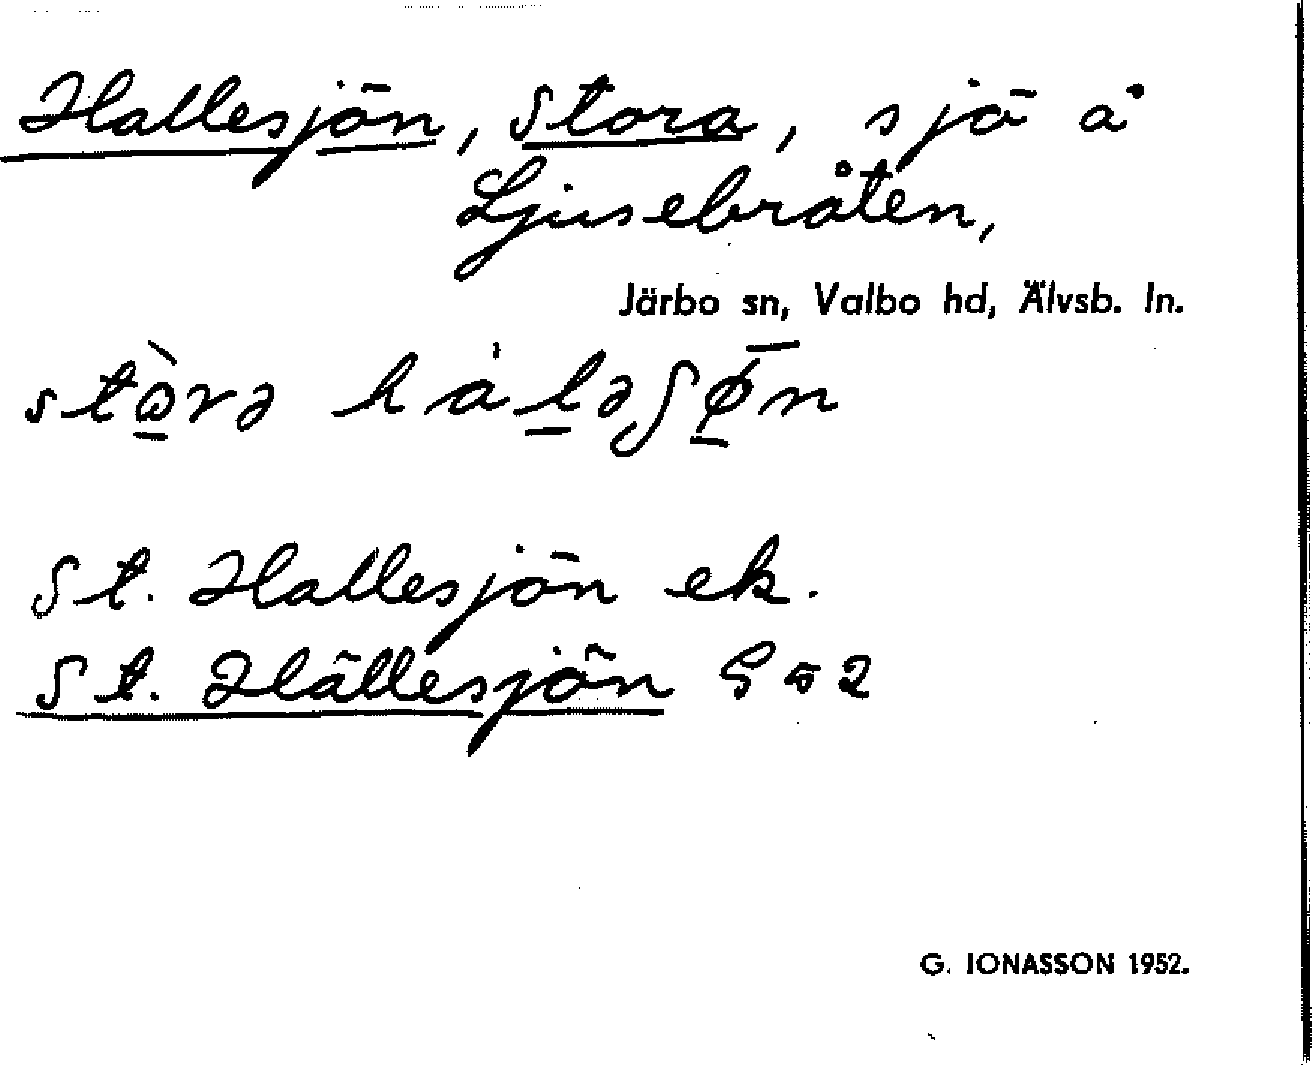 Hallesjön, Stora, sjö å
Ljusebråten,
Järbo sn, Valbo hd, Älvsb. ln.
St. Hallesjön ek.
St. Hällesjön
G. IONASSON 1952.